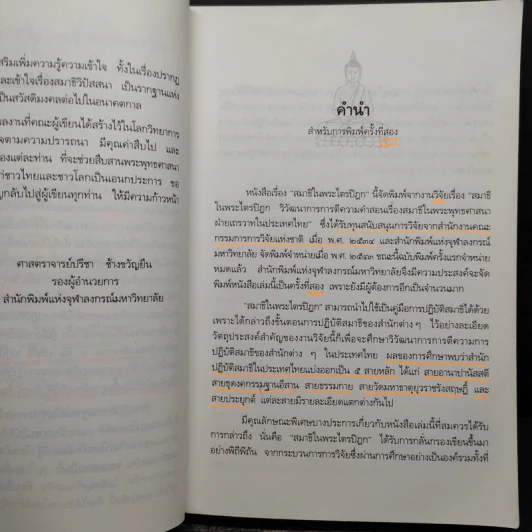 สริมเพิ่มความรู้ความเข้าใจ ทั้งในเรื่องปรากฏ
ละเข้าใจเรื่องสมาธิวิปัสสนา เป็นรากฐานแห่ง
เป็นสวัสดิมงคลต่อไปในอนาคตกาล
ลงานที่คณะผู้เขียนได้สร้างไว้ในโลกวิทยาการ
จตามความปรารถนา มีคุณค่าสืบไป และ
องแต่ละท่าน ที่จะช่วยสืบสานพระพุทธศาสนา
ก่ชาวไทยและชาวโลกเป็นเอนกประการ ขอ
ญกลับไปสู่ผู้เขียนทุกท่าน ให้มีความก้าวหน้า
ศาสตราจารย์ปรีชา ช้างขวัญยืน
รองผู้อำนวยการ
สำนักพิมพ์แห่งจุฬาลงกรณ์มหาวิทยาลัย
คำนำ
สำหรับการพิมพ์ครั้งที่สอง
หนังสือเรื่อง "สมาธิในพระไตรปิฎก" นี้จัดพิมพ์จากงานวิจัยเรื่อง "สมาธิ
ในพระไตรปิฎก วิวัฒนาการการตีความคำสอนเรื่องสมาธิในพระพุทธศาสนา
ฝ่ายเถรวาทในประเทศไทย" ซึ่งได้รับทุนสนับสนุนการวิจัยจากสำนักงานคณะ
กรรมการการวิจัยแห่งชาติ เมื่อ พ.ศ. ๒๕๓๔ และสำนักพิมพ์แห่งจุฬาลงกรณ์
มหาวิทยาลัย จัดพิมพ์จำหน่ายเมื่อ พ.ศ. ๒๕๔๓ ขณะนี้ฉบับพิมพ์ครั้งแรกจำหน่าย
หมดแล้ว สำนักพิมพ์แห่งจุฬาลงกรณ์มหาวิทยาลัยจึงมีความประสงค์จะจัด
พิมพ์หนังสือเล่มนี้เป็นครั้งที่สอง เพราะยังมีผู้ต้องการอีกเป็นจำนวนมาก
"สมาธิในพระไตรปิฎก" สามารถนำไปใช้เป็นคู่มือการปฏิบัติสมาธิได้ด้วย
เพราะได้กล่าวถึงขั้นตอนการปฏิบัติสมาธิของสำนักต่าง ๆ ไว้อย่างละเอียด
วัตถุประสงค์สำคัญของงานวิจัยนี้ก็เพื่อจะศึกษาวิวัฒนาการการตีความการ
ปฏิบัติสมาธิของสำนักต่าง ๆ ในประเทศไทย ผลของการศึกษาพบว่าสำนัก
ปฏิบัติสมาธิในประเทศไทยแบ่งออกเป็น ๕ สายหลัก ได้แก่ สายอานาปานัสสติ
สายธุดงคกรรมฐานอีสาน สายธรรมกาย สายวัดมหาธาตุยุวราชรังสฤษฎิ์ และ
สายประยุกต์ แต่ละสายมีรายละเอียดแตกต่างกันไป
มีคุณลักษณะพิเศษบางประการเกี่ยวกับหนังสือเล่มนี้ที่สมควรได้รับ
การกล่าวถึง นั่นคือ "สมาธิในพระไตรปิฎก" ได้รับการกลั่นกรองเขียนขึ้นมา
อย่างพิถีพิถัน จากกระบวนการการวิจัยซึ่งผ่านการศึกษาอย่างเป็นองค์รวมทั้งที่